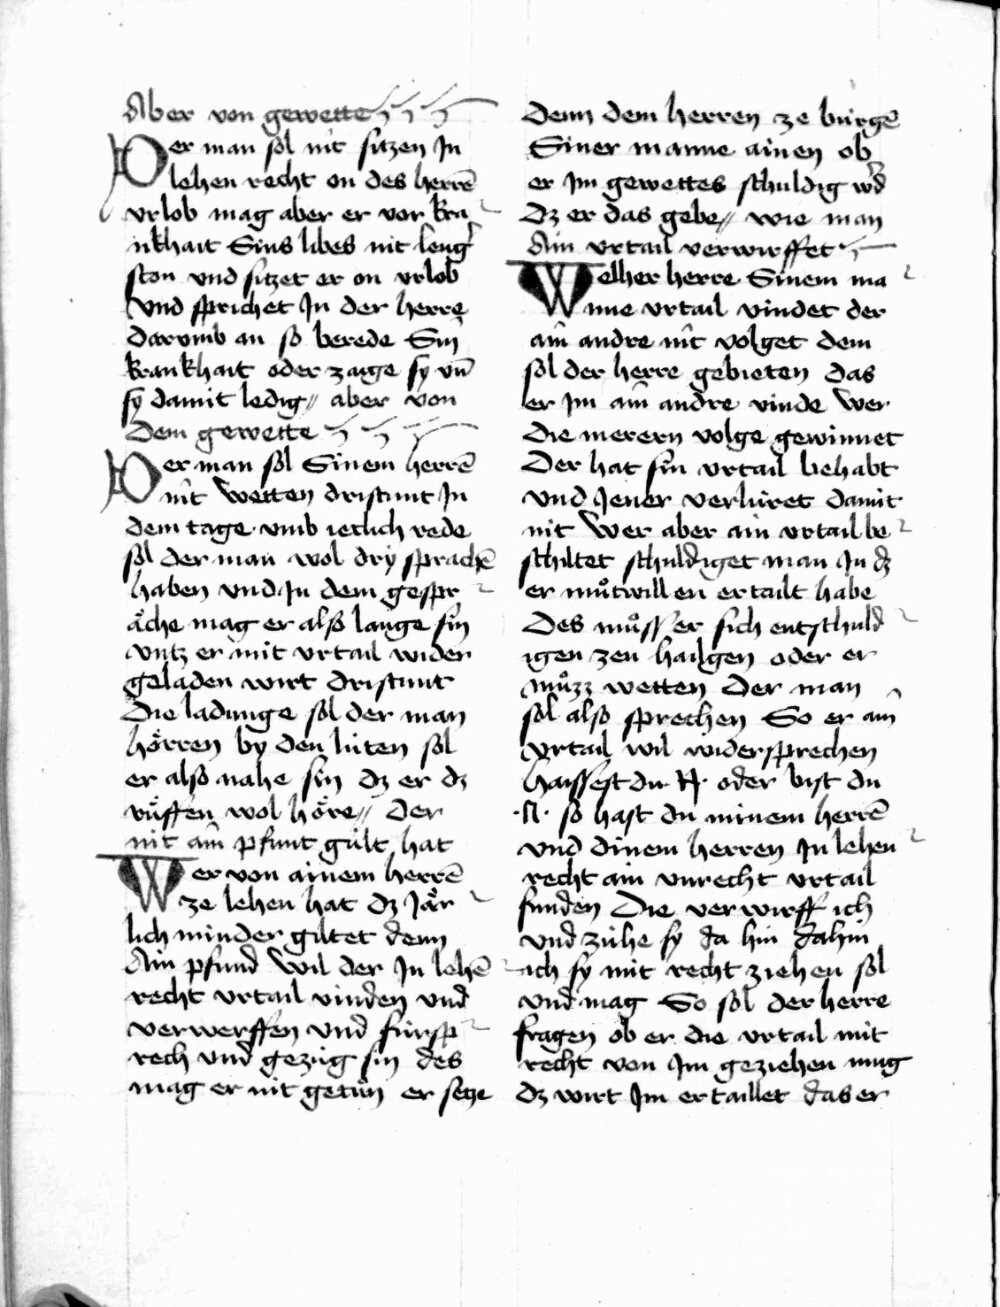 Aber von gewette
Der man sol nit sitzen In
lehen recht on des herrē
vrlob mag aber er vor kra
nkhait Sins libes nit leng
ston vnd sitzet er on vrlob
Vnd sprichet In der herre
darumb an so berede Sin
krankhait oder zaige sy vn̄
sy damit ledig〃 aber von
Dem gewette
Der man sol Sinem herrē
nit wetten dristunt In
dem tage vmb ietlich rede
sol der man wol dry sprachē
haben vnd In dem gespr
ache mag er also lange sin
vntz er mit vrtail wider
geladen wirt dristunt
Die ladunge sol der man
hörren by den lüten sol
er also nahe sin dz er dz
rüffen wol höre〃 Der
nit ain pfunt gült hat
Wer von ainem herrē
ze lehen hat dz Jär
lich minder giltet denn
Ain pfund Wil der In lehē
recht vrtail vinden vnd
verwerffen vnd fürsp
rech vnd gezüg sin des
mag er nit getün er setze
denn dem herren ze bürgē
Siner manne ainen ob
er Im gewettes schuldig w'd
Dz er das gebe〃 wie man
Ain vrtail verwirffet
Welher herre Sinem ma
nne vrtail vindet der
ain andre nit volget dem
sol der herre gebieten das
er Im ain andre vinde Wer
die merern volge gewinnet
Der hat sin vrtail behabt
vnd Jener verlüret damit
nit Wer aber ain vrtail be
schiltet schuldiget man In dz
er můtwillen ertailt habe
Des můsser sich entschuld
igen zen hailgen oder er
můzz wetten Der man
sol also sprechen So er ain
vrtail wil widersprechen
Haissest du ·N· oder bist du
·N· so hast du minem herrē
vnd dinem herren In lehen
recht ain vnrecht vrtail
funden Die verwirff ich
vnd zühe sy da hin dahin
ich sy mit recht ziehen sol
vnd mag So sol der herre
fragen ob er die vrtail mit
recht von Im geziehen mug
dz wirt Im ertaillet das er